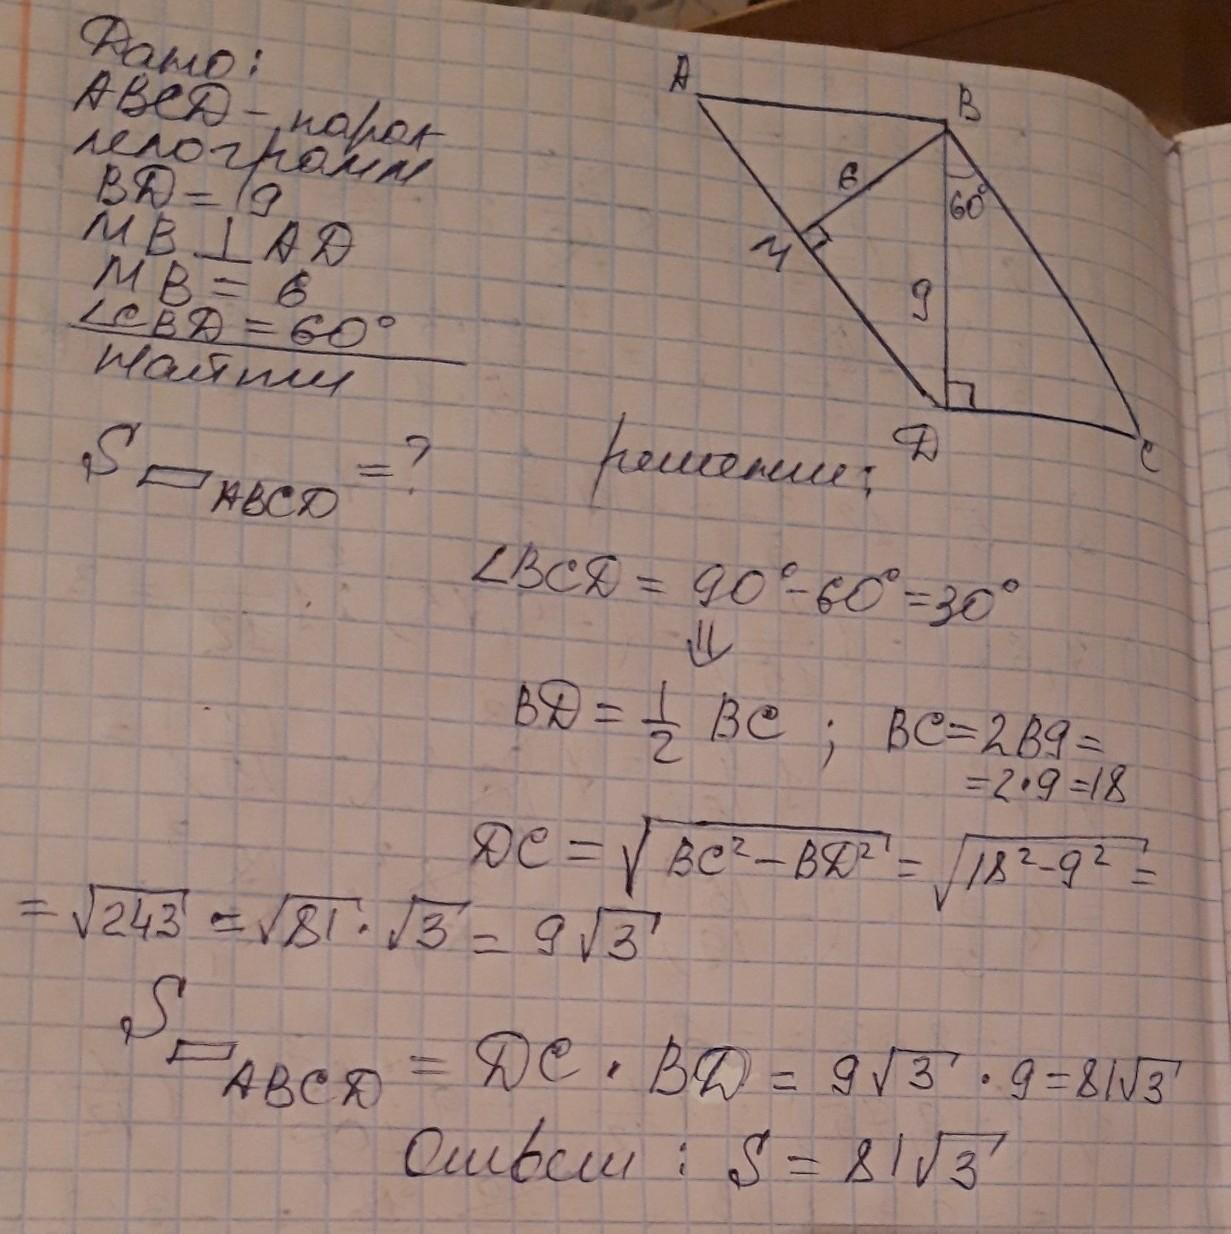 Дано:
ABCD - парал
лелограмм
BD = 9
MB ⊥ AD
MB = 6
∠CBD = 60°
Найти
S▱ABCD = ?
A
B
6
60°
M
9
D
C
решение:
∠BCD = 90° - 60° = 30°
⇓
BD = 1/2 BC ; BC = 2B9 =
= 2·9 = 18
DC = √(BC² - BD²) = √(18² - 9²) =
= √243 = √81 · √3 = 9√3
S▱ABCD = DC · BD = 9√3 · 9 = 81√3
Ответ : S = 81√3